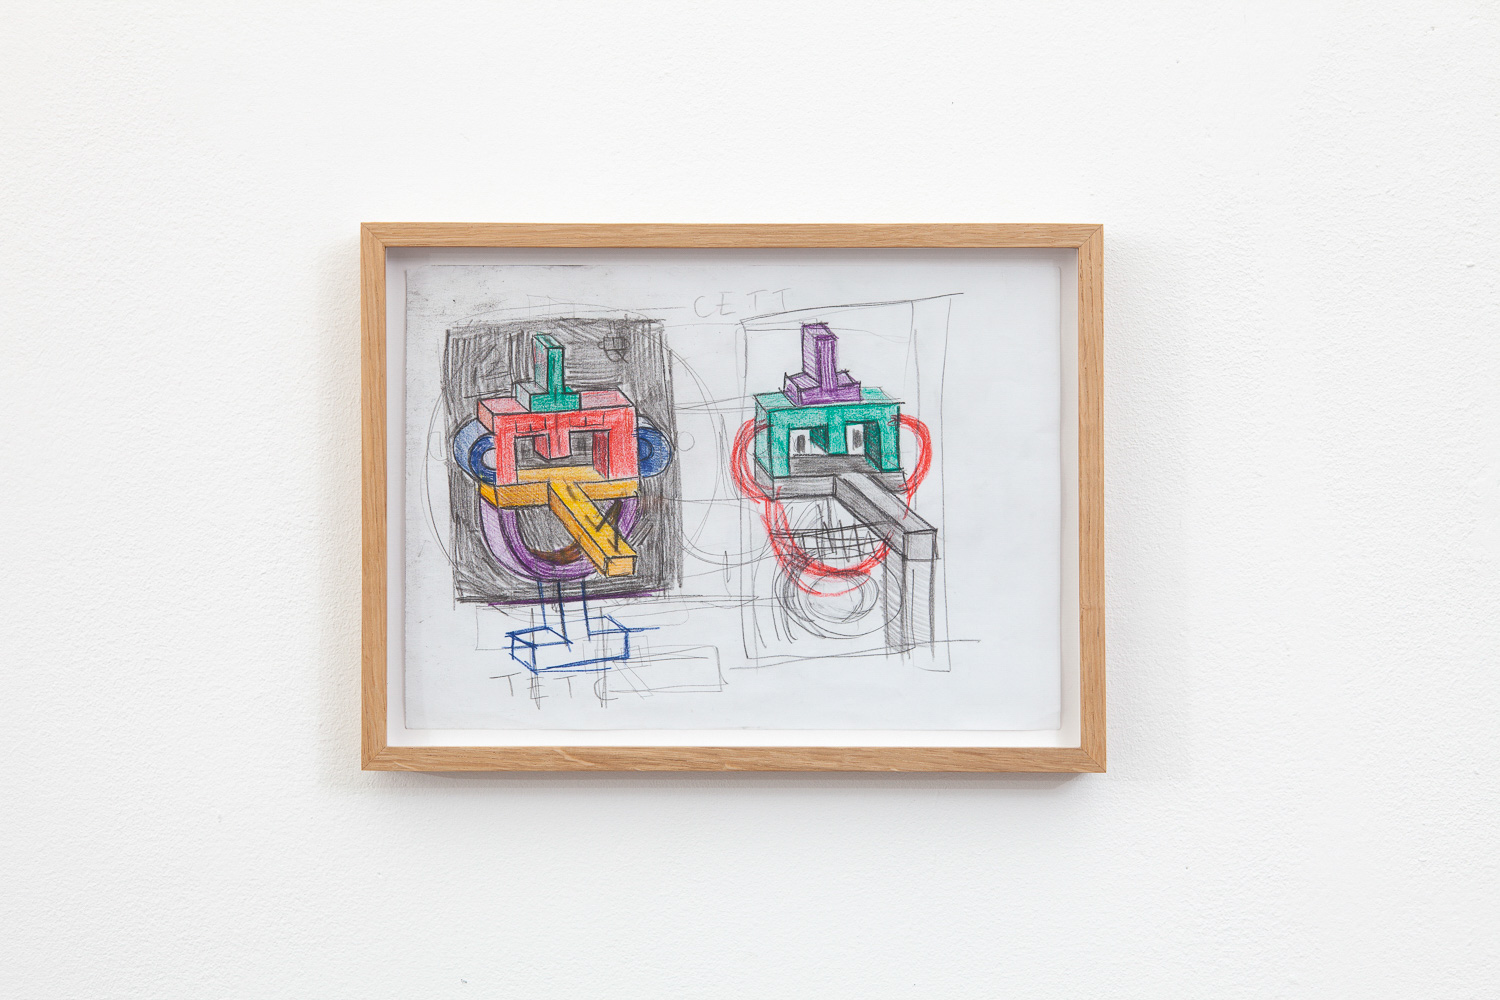 CETT
TETC